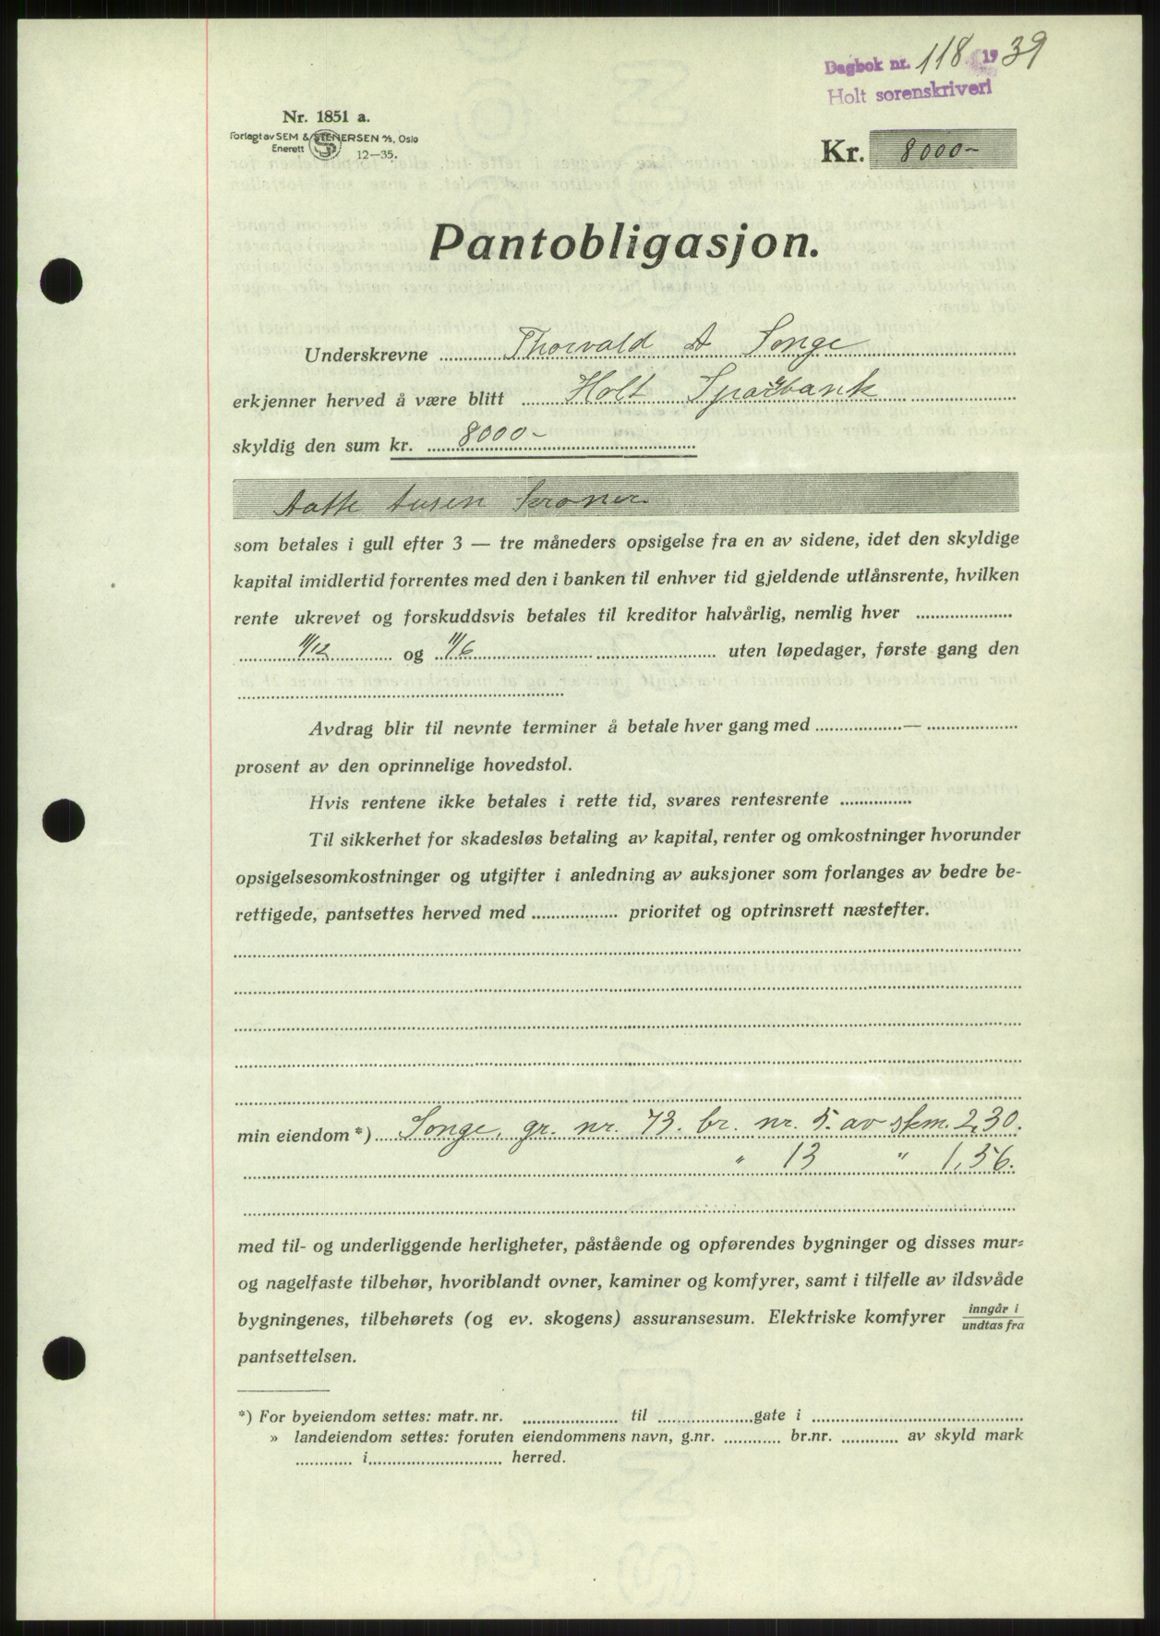 Dagbok nr. 118 1939
Holt sorenskriveri
Nr. 1851 a.
Forlagt av SEM & STENERSEN A/S, Oslo
Enerett 12—35.
Kr. 8000-
Pantobligasjon.
Underskrevne Thorvald A Songe
erkjenner herved å være blitt Holt Sparebank
skyldig den sum kr. 8000-
Aatte tusen kroner
som betales i gull efter 3 — tre måneders opsigelse fra en av sidene, idet den skyldige
kapital imidlertid forrentes med den i banken til enhver tid gjeldende utlånsrente, hvilken
rente ukrevet og forskuddsvis betales til kreditor halvårlig, nemlig hver
11/12 og 11/6 uten løpedager, første gang den
Avdrag blir til nevnte terminer å betale hver gang med —
prosent av den oprinnelige hovedstol.
Hvis rentene ikke betales i rette tid, svares rentesrente
Til sikkerhet for skadesløs betaling av kapital, renter og omkostninger hvorunder
opsigelsesomkostninger og utgifter i anledning av auksjoner som forlanges av bedre be-
rettigede, pantsettes herved med prioritet og optrinsrett næstefter.
min eiendom *) Songe, gr. nr. 73. br. nr. 5. av skm. 2,30.
" 13 " 1,56.
med til- og underliggende herligheter, påstående og opførendes bygninger og disses mur-
og nagelfaste tilbehør, hvoriblandt ovner, kaminer og komfyrer, samt i tilfelle av ildsvåde
bygningenes, tilbehørets (og ev. skogens) assuransesum. Elektriske komfyrer inngår i / undtas fra
pantsettelsen.
*) For byeiendom settes: matr. nr. til gate i
» landeiendom settes: foruten eiendommens navn, g.nr. br.nr. av skyld mark
i herred.